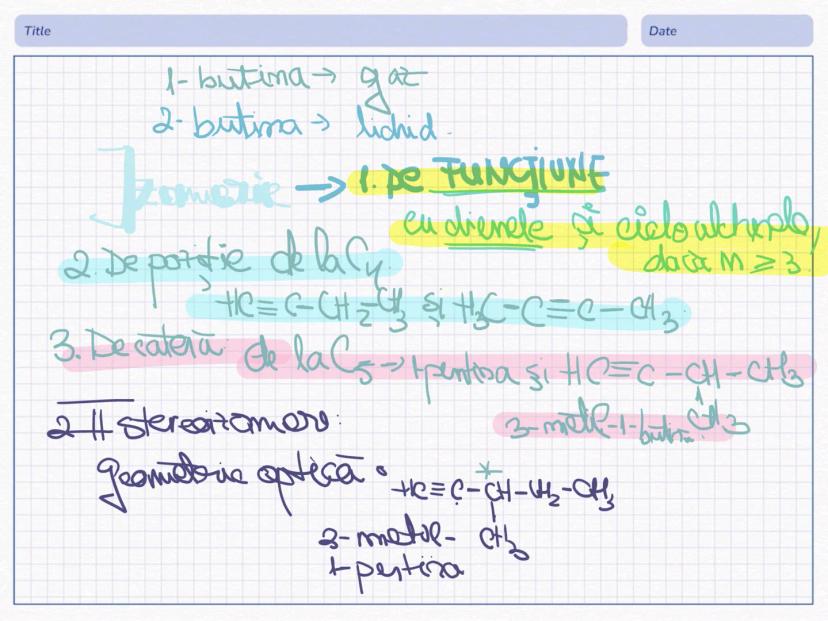 Title Date
1-butina → gaz
2-butina → lichid.
Izomerie → 1. De FUNCȚIUNE
cu dienele și cicloalchenele,
dacă n ≥ 3
2. De poziție de la C4
HC≡C-CH2-CH3 și H3C-C≡C-CH3
3. De catenă: de la C5 → 1-pentina și HC≡C-CH-CH3
CH3
3-metil-1-butina
geometrie optică
*
HC≡C-CH-CH2-CH3
3-metil- CH3
1-pentina